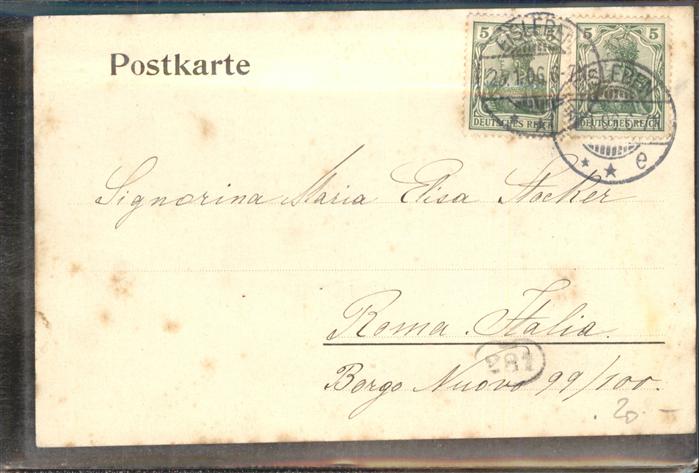 Postkarte
5 5
EISLEBEN EISLEBEN
DEUTSCHES REICH DEUTSCHES REICH
* * e
Signorina Maria Elisa Stocker
Roma. Italia.
281
Borgo Nuovo 99/100.
20.-